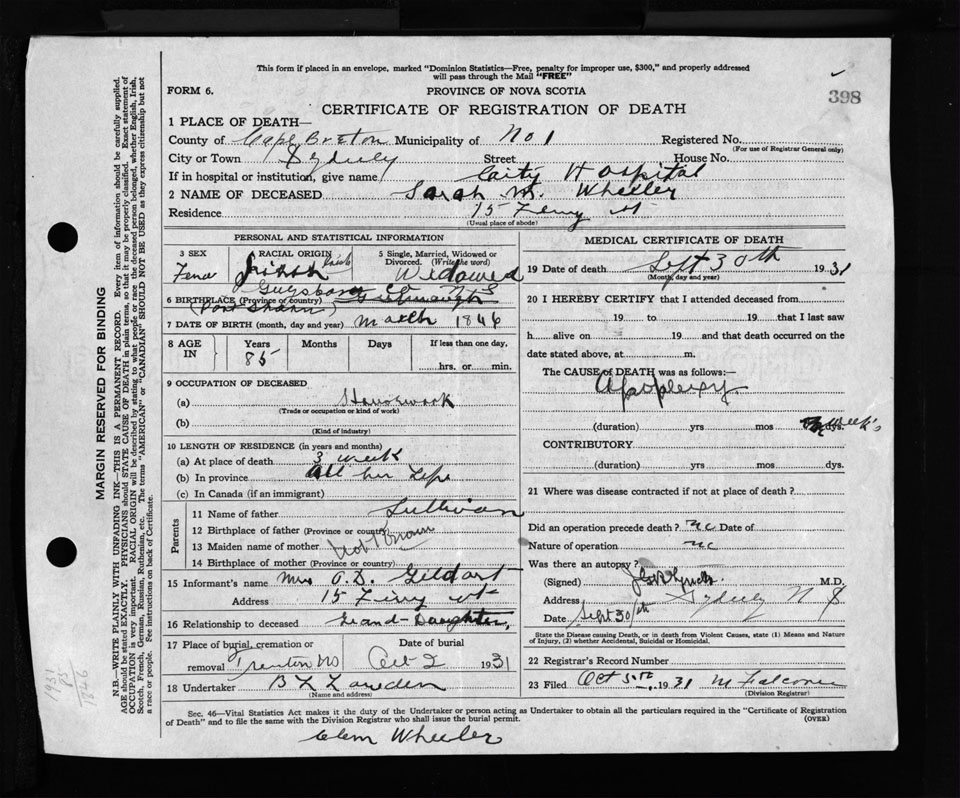 This form if placed in an envelope, marked "Dominion Statistics—Free, penalty for improper use, $300," and properly addressed
will pass through the Mail "FREE"
FORM 6.
PROVINCE OF NOVA SCOTIA
398
CERTIFICATE OF REGISTRATION OF DEATH
1 PLACE OF DEATH—
County of Cape Breton Municipality of No 1 Registered No.
(For use of Registrar General only)
City or Town Sydney Street House No.
If in hospital or institution, give name City Hospital
2 NAME OF DECEASED Sarah M. Wheeler
Residence 15 St
(Usual place of abode)
PERSONAL AND STATISTICAL INFORMATION
3 SEX
RACIAL ORIGIN
5 Single, Married, Widowed or Divorced. (Write the word)
Widowed
Co N S
6 BIRTHPLACE (Province or country)
7 DATE OF BIRTH (month, day and year) March 1846
8 AGE IN
Years Months Days If less than one day,
85
hrs. or min.
9 OCCUPATION OF DECEASED
(a) Housework
(Trade or occupation or kind of work)
(b)
(Kind of industry)
10 LENGTH OF RESIDENCE (in years and months)
(a) At place of death 3 week
(b) In province All her Life
(c) In Canada (if an immigrant)
Parents
11 Name of father Sullivan
12 Birthplace of father (Province or country)
13 Maiden name of mother not Known
14 Birthplace of mother (Province or country)
15 Informant's name Mrs Gildart
Address 15 St
16 Relationship to deceased Grand-Daughter,
17 Place of burial, cremation or removal Trenton NS
Date of burial Oct 2 1931
18 Undertaker
(Name and address)
MEDICAL CERTIFICATE OF DEATH
19 Date of death Sept 30th 1931
(Month, day and year)
20 I HEREBY CERTIFY that I attended deceased from
19 to 19 that I last saw
h alive on 19 and that death occurred on the
date stated above, at m.
The CAUSE of DEATH was as follows:—
Apoplexy.
(duration) yrs mos weeks
CONTRIBUTORY
(duration) yrs mos dys.
21 Where was disease contracted if not at place of death?
Did an operation precede death? no Date of
Nature of operation no
Was there an autopsy?
(Signed) M.D.
Address Sydney N S
Date Sept 30th
State the Disease causing Death, or in death from Violent Causes, state (1) Means and Nature of Injury, (2) whether Accidental, Suicidal or Homicidal.
22 Registrar's Record Number
23 Filed Oct 1931 M Falconer
(Division Registrar)
Sec. 46—Vital Statistics Act makes it the duty of the Undertaker or person acting as Undertaker to obtain all the particulars required in the "Certificate of Registration
of Death" and to file the same with the Division Registrar who shall issue the burial permit.
(OVER)
Clem Wheeler
MARGIN RESERVED FOR BINDING
N.B.—WRITE PLAINLY WITH UNFADING INK—THIS IS A PERMANENT RECORD. Every item of information should be carefully supplied.
AGE should be stated EXACTLY. PHYSICIANS should STATE CAUSE OF DEATH in plain terms, so that it may be properly classified. Exact statement of
OCCUPATION is very important. RACIAL ORIGIN will be described by stating to what people or race the deceased person belonged, whether English, Irish,
Scotch, French, German, Russian, Ruthenian, etc. The terms "AMERICAN" or "CANADIAN" SHOULD NOT BE USED as they express citizenship but not
a race or people. See instructions on back of Certificate.
1931
85
1846